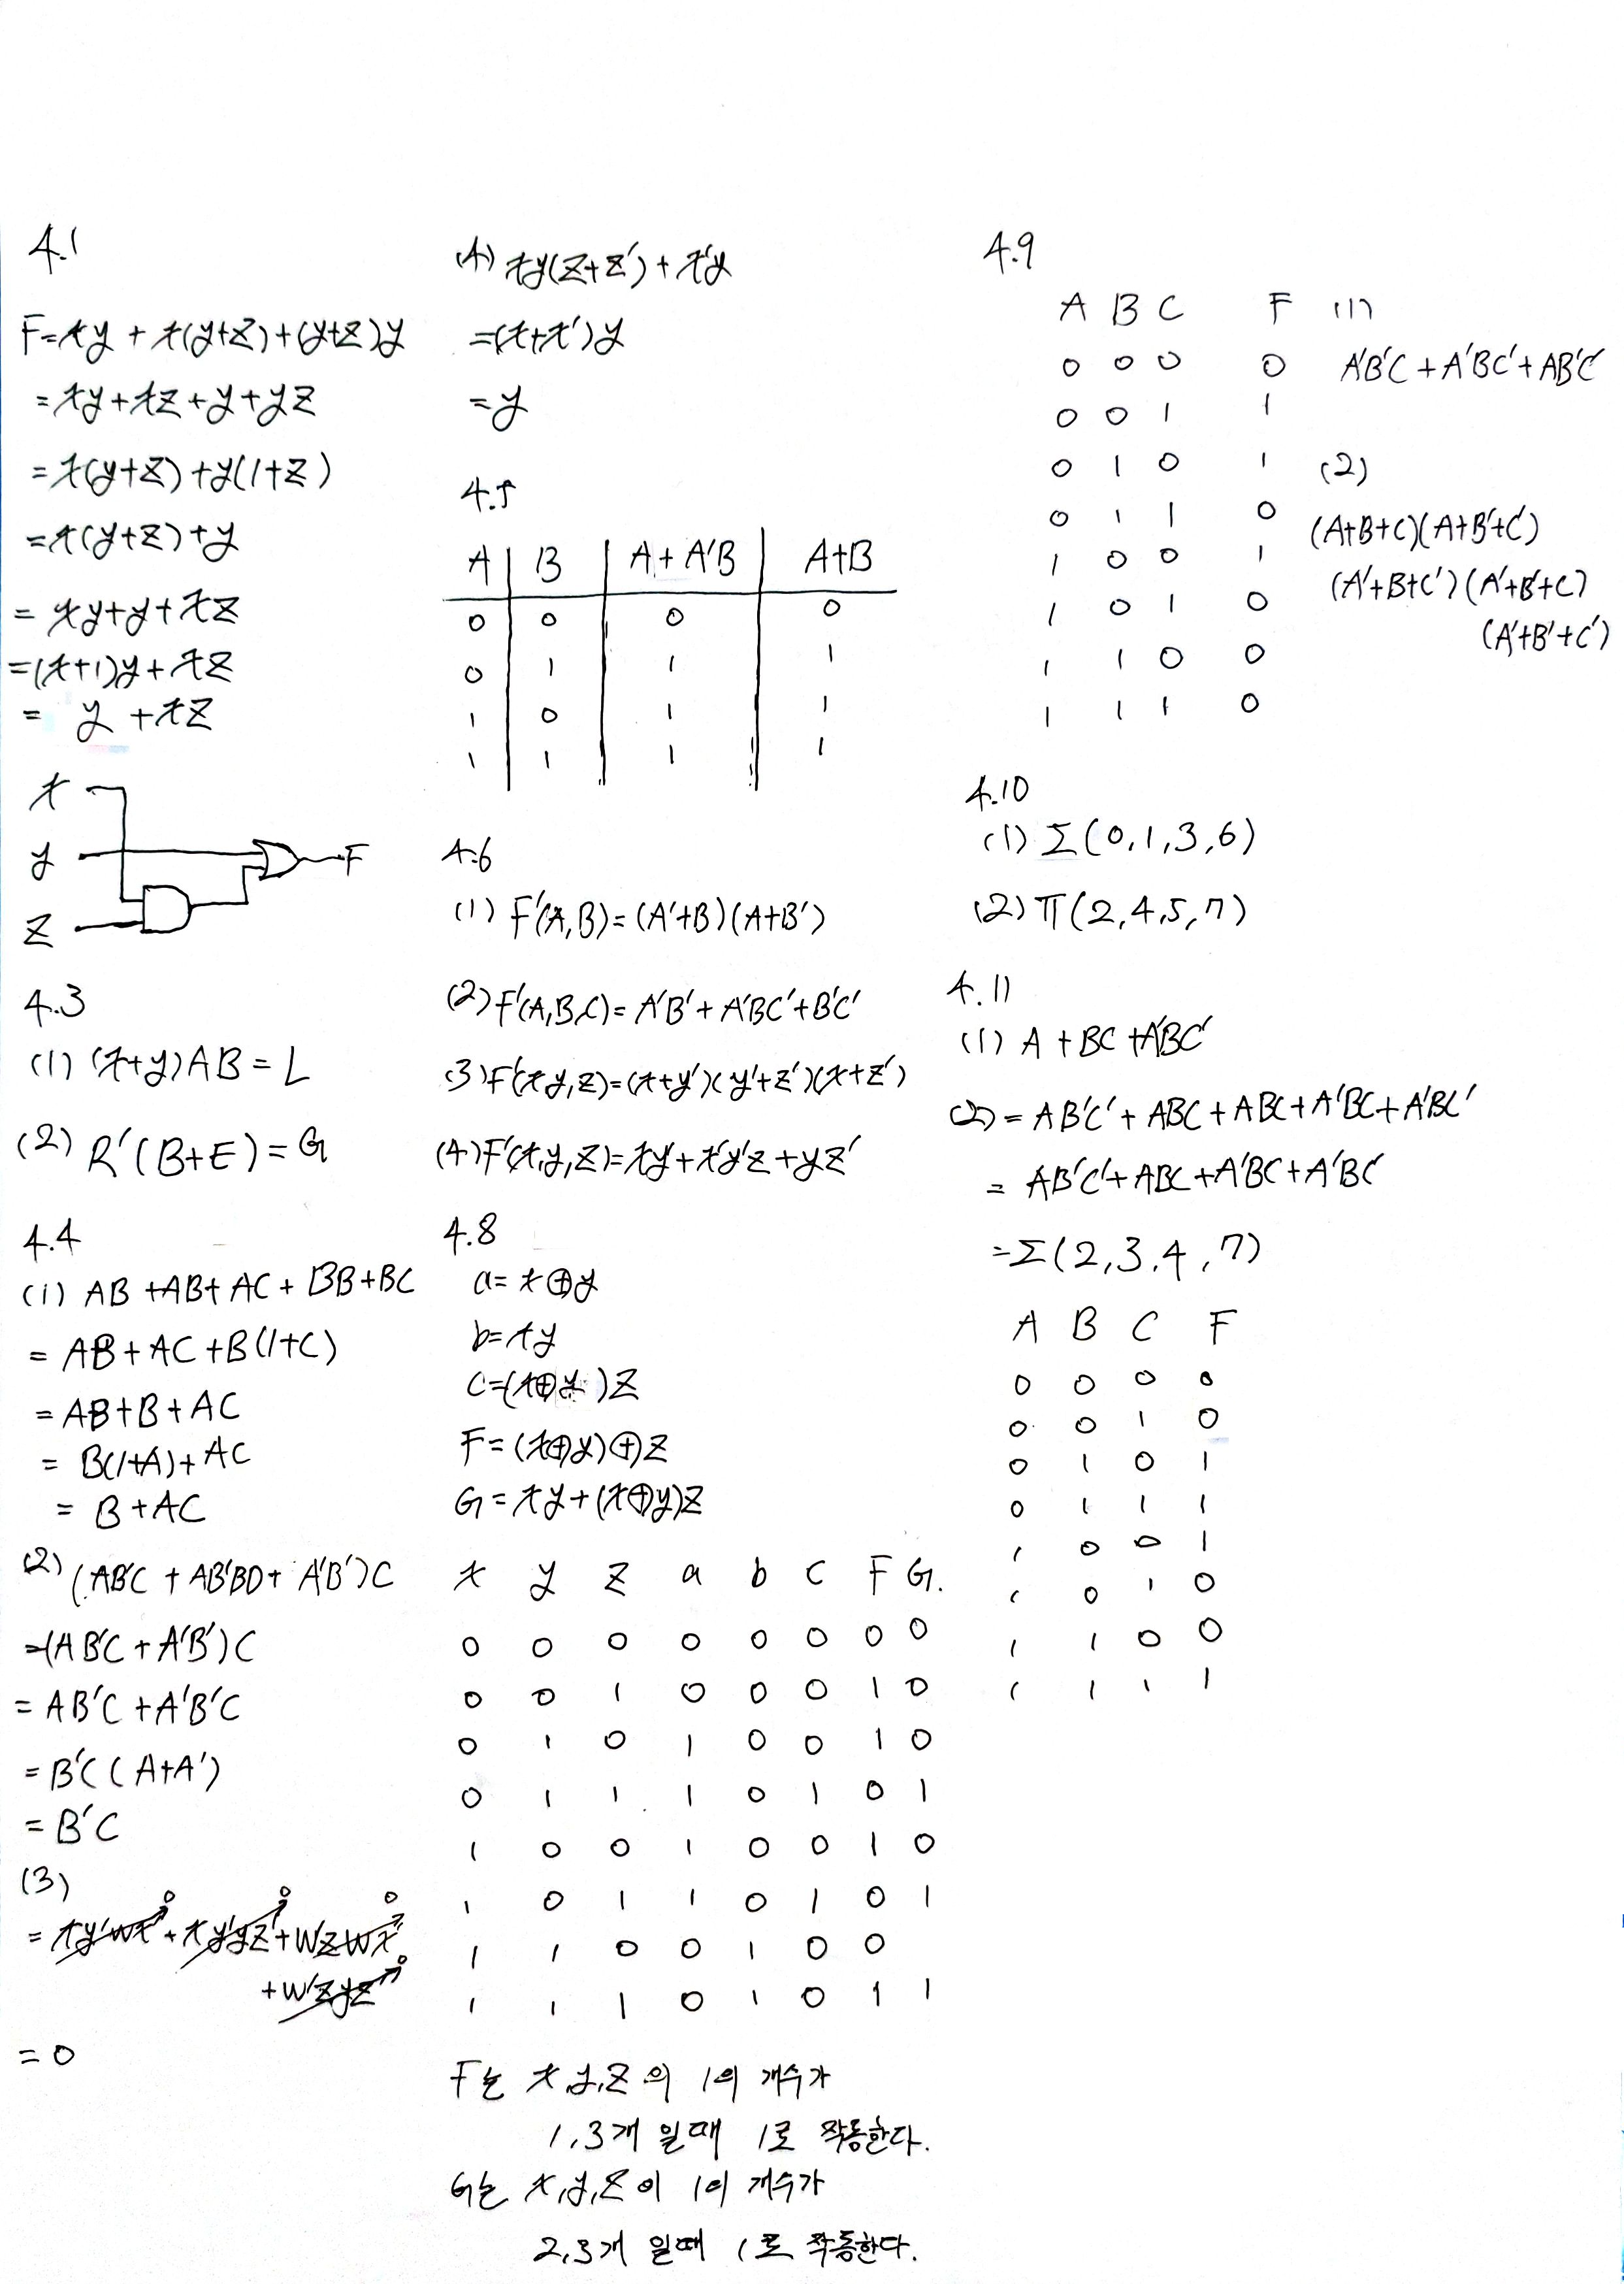 4.1
F=xy + x(y+z)+(y+z)y
=xy+xz+y+yz
=x(y+z)+y(1+z)
=x(y+z)+y
= xy+y+xz
=(x+1)y+xz
= y +xz
x
y
F
z
4.3
(1) (x+y)AB=L
(2) R'(B+E)=G
4.4
(1) AB +AB+AC+BB+BC
= AB+AC+B(1+C)
=AB+B+AC
= B(1+A)+AC
= B+AC
(2) (AB'C +AB'BD+ A'B')C
=(AB'C+A'B')C
= AB'C+A'B'C
=B'C(A+A')
=B'C
(3)
= xy'wx' + xy'yz'+w'zwx'
+w'zyz'
0 0 0 0
=0
(4) xy(z+z')+x'y
=(x+x')y
=y
4.5
A B A+A'B A+B
0 0 0 0
0 1 1 1
1 0 1 1
1 1 1 1
4.6
(1) F'(A,B)=(A'+B)(A+B')
(2) F'(A,B,C)=A'B'+A'BC'+B'C'
(3) F'(x,y,z)=(x+y')(y'+z')(x+z')
(4) F'(x,y,z)=xy'+x'y'z+yz'
4.8
a=x⊕y
b=xy
c=(x⊕y)z
F=(x⊕y)⊕z
G=xy+(x⊕y)z
x y z a b c F G.
0 0 0 0 0 0 0 0
0 0 1 0 0 0 1 0
0 1 0 1 0 0 1 0
0 1 1 1 0 1 0 1
1 0 0 1 0 0 1 0
1 0 1 1 0 1 0 1
1 1 0 0 1 0 0
1 1 1 0 1 0 1 1
F는 x,y,z의 1의 개수가
1,3개 일때 1로 작동한다.
G는 x,y,z이 1이 개수가
2,3개 일때 1로 작동한다.
4.9
A B C F
0 0 0 0
0 0 1 1
0 1 0 1
0 1 1 0
1 0 0 1
1 0 1 0
1 1 0 0
1 1 1 0
(1)
A'B'C+A'BC'+AB'C'
(2)
(A+B+C)(A+B'+C')
(A'+B+C')(A'+B'+C)
(A'+B'+C')
4.10
(1) Σ(0,1,3,6)
(2) π(2,4,5,7)
4.11
(1) A+BC+A'BC'
(2) = AB'C'+ABC+ABC+A'BC+A'BC'
= AB'C'+ABC+A'BC+A'BC'
=Σ(2,3,4,7)
A B C F
0 0 0 0
0 0 1 0
0 1 0 1
0 1 1 1
1 0 0 1
1 0 1 0
1 1 0 0
1 1 1 1